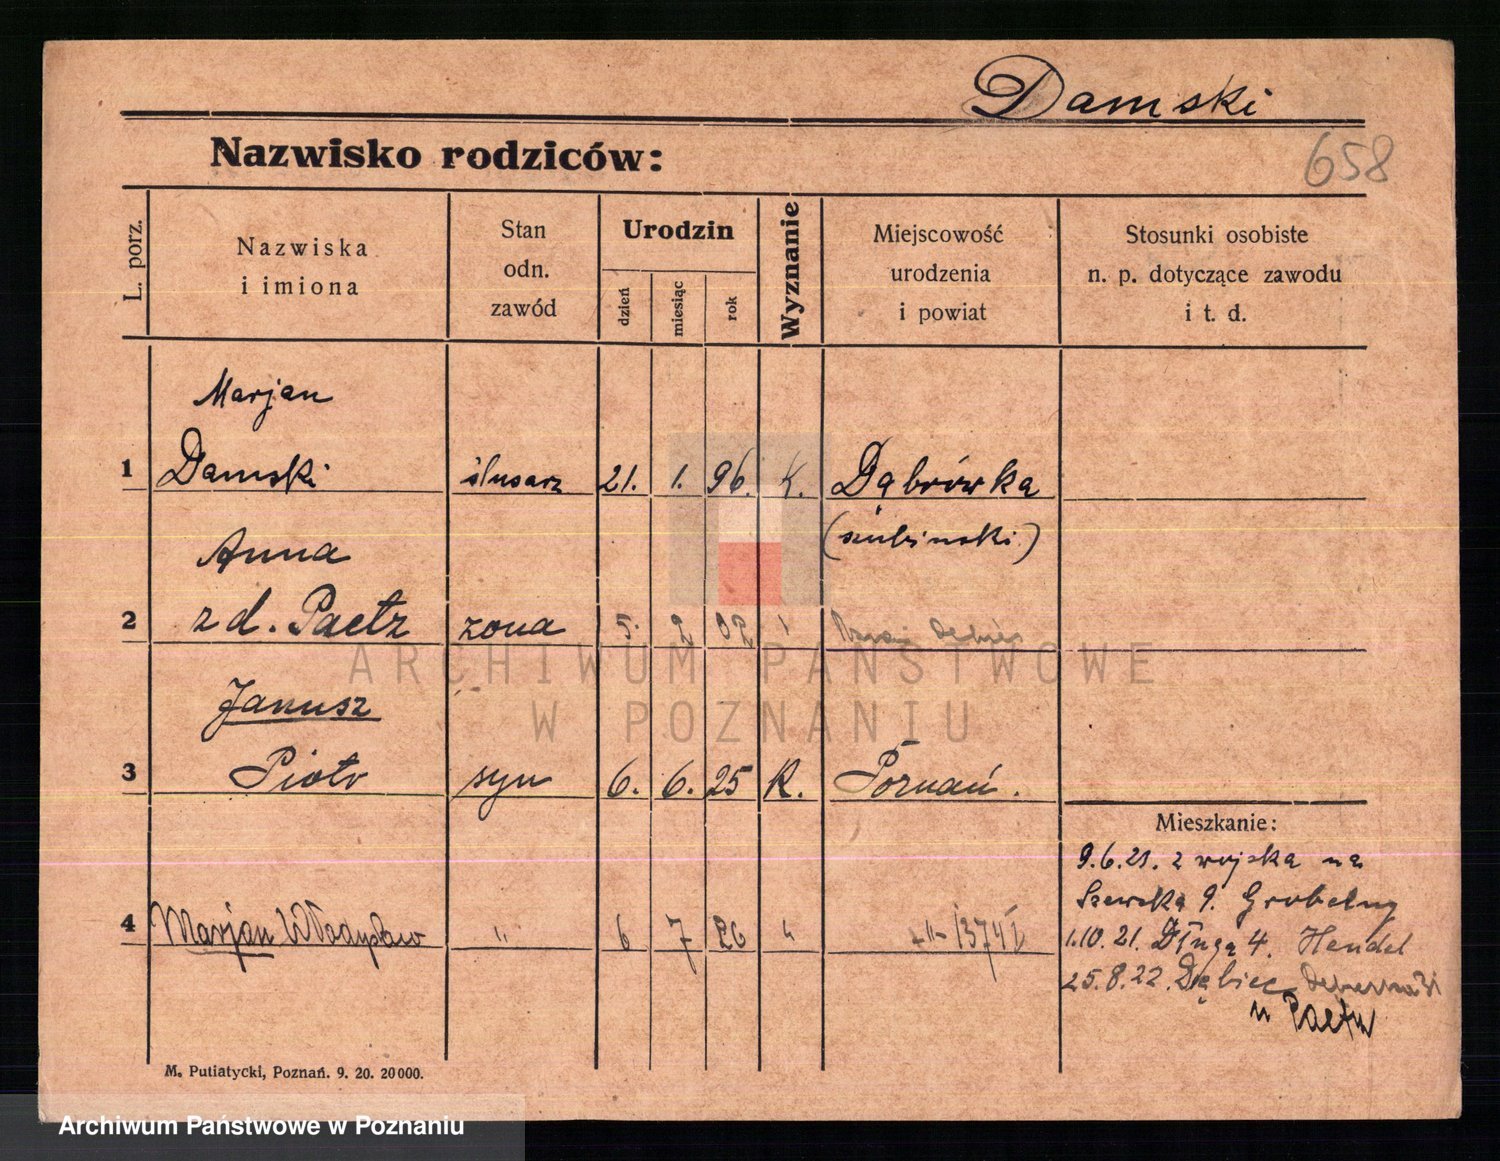 Damski
658
Nazwisko rodziców:
L. porz.
Nazwiska
i imiona
Stan
odn.
zawód
Urodzin
dzień
miesiąc
rok
Wyznanie
Miejscowość
urodzenia
i powiat
Stosunki osobiste
n. p. dotyczące zawodu
i t. d.
Marjan
1 Damski ślusarz 21. 1. 96. K. Dąbrówka
Anna
2 z d. Paetz żona 5. 2 02
Janusz
3 Piotr syn 6. 6. 25 K. Poznań.
Mieszkanie:
9.6.21. z wojska na
Szewska 9. Grobelny
4 Marjan Władysław " 6 7 26 "
1.10.21. Długa 4. Handel
25.8.22. Dębiec
u Paetz
M. Putiatycki, Poznań. 9. 20. 20000.
ARCHIWUM PAŃSTWOWE
W POZNANIU
Archiwum Państwowe w Poznaniu